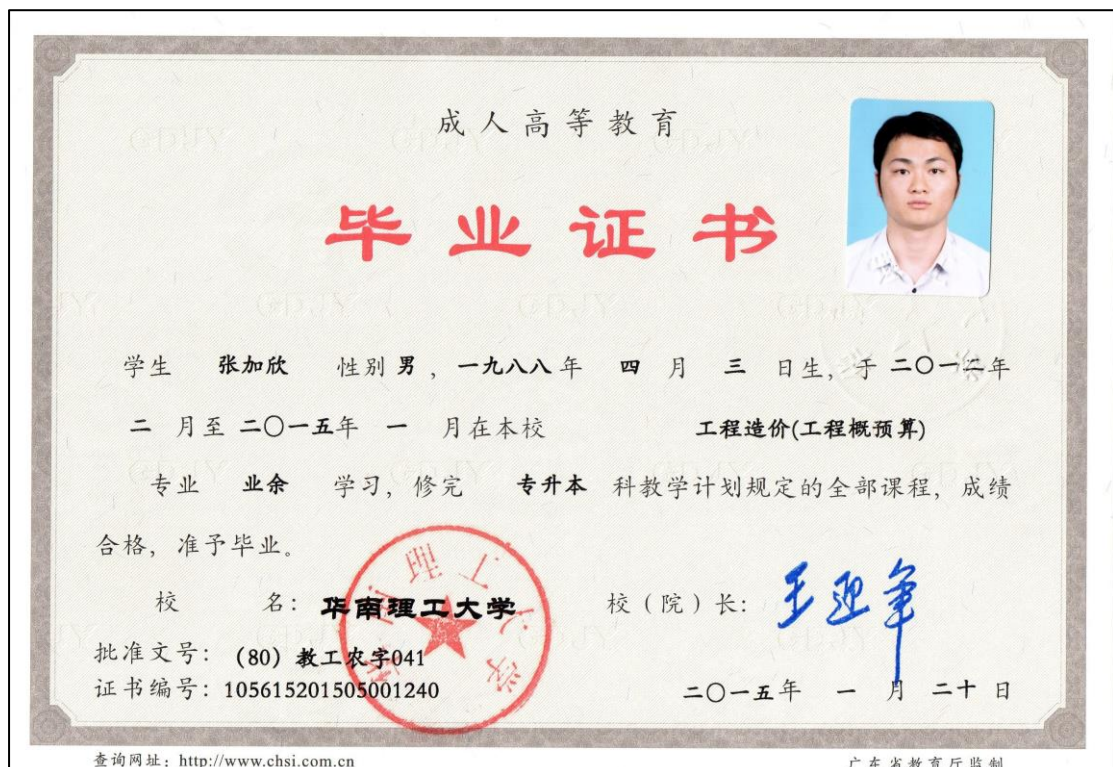 成人高等教育
毕业证书
学生 张加欣 性别 男 ，一九八八年 四 月 三 日生，于 二〇一二年
二 月至 二〇一五年 一 月在本校 工程造价(工程概预算)
专业 业余 学习，修完 专升本 科教学计划规定的全部课程，成绩
合格，准予毕业。
校 名：华南理工大学 校（院）长：王迎军
华南理工大学
批准文号：（80）教工农字041
证书编号：105615201505001240 二〇一五年 一 月 二十 日
查询网址：http://www.chsi.com.cn 广东省教育厅监制